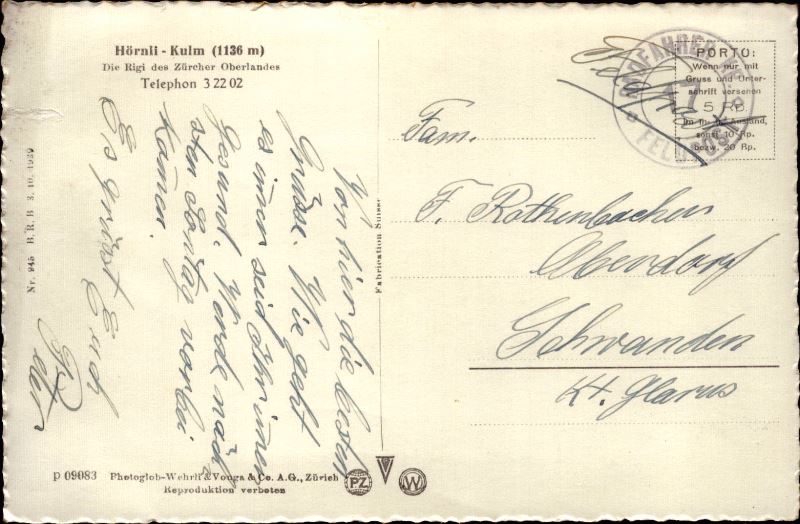 Hörnli - Kulm (1136 m)
Die Rigi des Zürcher Oberlandes
Telephon 3 22 02
Von hier die besten
Grüsse. Wie geht
es imer seid Ihr imer
Gesund. Werde näch
sten Sontag vorbei
kamen.
Es grüsst Euch
Peter
Nr. 945 B.R.B 3. 10. 1939
p 09083 Photoglob-Wehrli & Vouga & Co. A.G., Zürich
Reproduktion verboten
Fabrication Suisse
PZ
W
Feldpost
PORTO:
Wenn nur mit
Gruss und Unter-
schrift versehen
5 Rp.
im Ausland,
sonst 10 Rp.
bezw. 20 Rp.
17
FELDPOST
Fam.
F. Rothenbacher
Oberdorf
Schwanden
Kt. Glarus